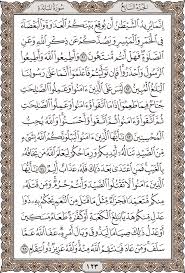 الجزء السابع سورة المائدة
إِنَّمَا يُرِيدُ ٱلشَّيْطَٰنُ أَن يُوقِعَ بَيْنَكُمُ ٱلْعَدَٰوَةَ وَٱلْبَغْضَآءَ
فِي ٱلْخَمْرِ وَٱلْمَيْسِرِ وَيَصُدَّكُمْ عَن ذِكْرِ ٱللَّهِ وَعَنِ
ٱلصَّلَوٰةِ فَهَلْ أَنتُم مُّنتَهُونَ ٩١ وَأَطِيعُوا۟ ٱللَّهَ وَأَطِيعُوا۟
ٱلرَّسُولَ وَٱحْذَرُوا۟ فَإِن تَوَلَّيْتُمْ فَٱعْلَمُوٓا۟ أَنَّمَا عَلَىٰ
رَسُولِنَا ٱلْبَلَٰغُ ٱلْمُبِينُ ٩٢ لَيْسَ عَلَى ٱلَّذِينَ ءَامَنُوا۟
وَعَمِلُوا۟ ٱلصَّٰلِحَٰتِ جُنَاحٌ فِيمَا طَعِمُوٓا۟ إِذَا مَا ٱتَّقَوا۟ وَّءَامَنُوا۟
وَعَمِلُوا۟ ٱلصَّٰلِحَٰتِ ثُمَّ ٱتَّقَوا۟ وَّءَامَنُوا۟ ثُمَّ ٱتَّقَوا۟ وَّأَحْسَنُوا۟ وَٱللَّهُ يُحِبُّ
ٱلْمُحْسِنِينَ ٩٣ يَٰٓأَيُّهَا ٱلَّذِينَ ءَامَنُوا۟ لَيَبْلُوَنَّكُمُ ٱللَّهُ بِشَىْءٍ
مِّنَ ٱلصَّيْدِ تَنَالُهُۥٓ أَيْدِيكُمْ وَرِمَاحُكُمْ لِيَعْلَمَ ٱللَّهُ مَن يَخَافُهُۥ
بِٱلْغَيْبِ فَمَنِ ٱعْتَدَىٰ بَعْدَ ذَٰلِكَ فَلَهُۥ عَذَابٌ أَلِيمٌ ٩٤ يَٰٓأَيُّهَا
ٱلَّذِينَ ءَامَنُوا۟ لَا تَقْتُلُوا۟ ٱلصَّيْدَ وَأَنتُمْ حُرُمٌ وَمَن قَتَلَهُۥ مِنكُم
مُّتَعَمِّدًا فَجَزَآءٌ مِّثْلُ مَا قَتَلَ مِنَ ٱلنَّعَمِ يَحْكُمُ بِهِۦ ذَوَا عَدْلٍ
مِّنكُمْ هَدْيًۢا بَٰلِغَ ٱلْكَعْبَةِ أَوْ كَفَّٰرَةٌ طَعَامُ مَسَٰكِينَ أَوْ عَدْلُ
ذَٰلِكَ صِيَامًا لِّيَذُوقَ وَبَالَ أَمْرِهِۦ عَفَا ٱللَّهُ عَمَّا
سَلَفَ وَمَنْ عَادَ فَيَنتَقِمُ ٱللَّهُ مِنْهُ وَٱللَّهُ عَزِيزٌ ذُو ٱنتِقَامٍ ٩٥
١٢٣